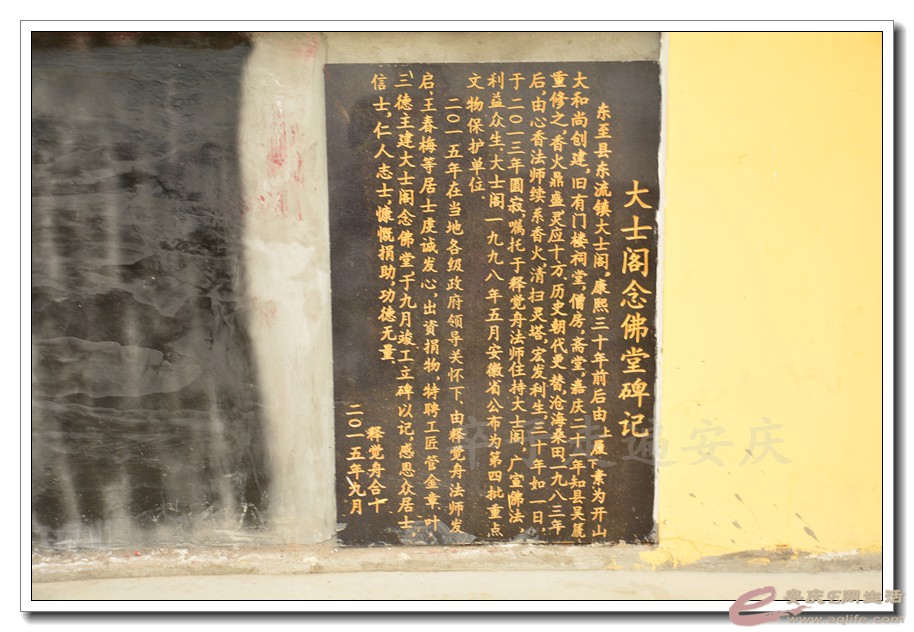 大士阁念佛堂碑记
东至县东流镇大士阁,康熙三十年前后由上履下素为开山
大和尚创建,旧有门楼祠堂,僧房,斋堂,嘉庆二十一年知县吴篪
重修之,香火鼎盛灵应十方,历史朝代更替,沧海桑田一九八三年
后,由心香法师续系香火,清扫灵塔,宏发利生,三十年如一日,
于二〇一三年圆寂,嘱托于释觉舟法师住持大士阁,广宣佛法,
利益众生,大士阁一九九八年五月安徽省公布为第四批重点
文物保护单位.
二〇一五年在当地各级政府领导关怀下,由释觉舟法师发
启,王春梅等居士虔诚发心,出资捐物,特聘工匠管金章、叶
三德主建大士阁念佛堂,于九月竣工,立碑以记,感恩众居士,
信士,仁人志士,慷慨捐助,功德无量.
释觉舟合十
二〇一五年九月
走遍安庆
安庆E网生活
www.aqlife.com